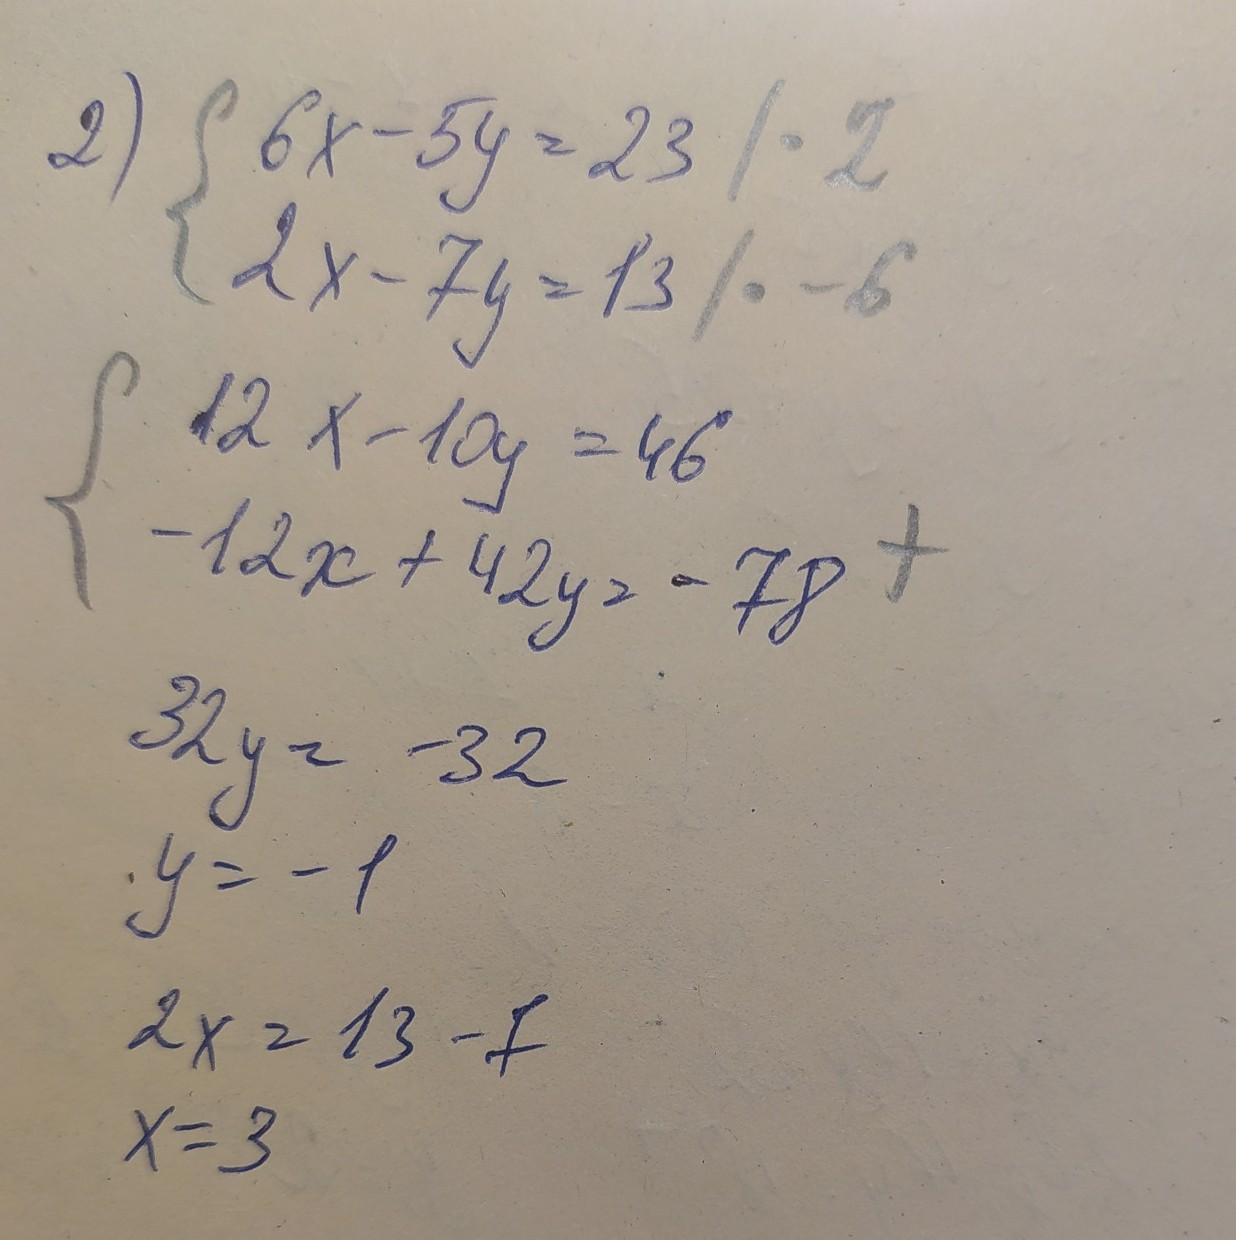 2) { 6x - 5y = 23 / · 2
2x - 7y = 13 / · - 6
{ 12x - 10y = 46
-12x + 42y = - 78 +
32y = -32
y = - 1
2x = 13 - 7
x = 3